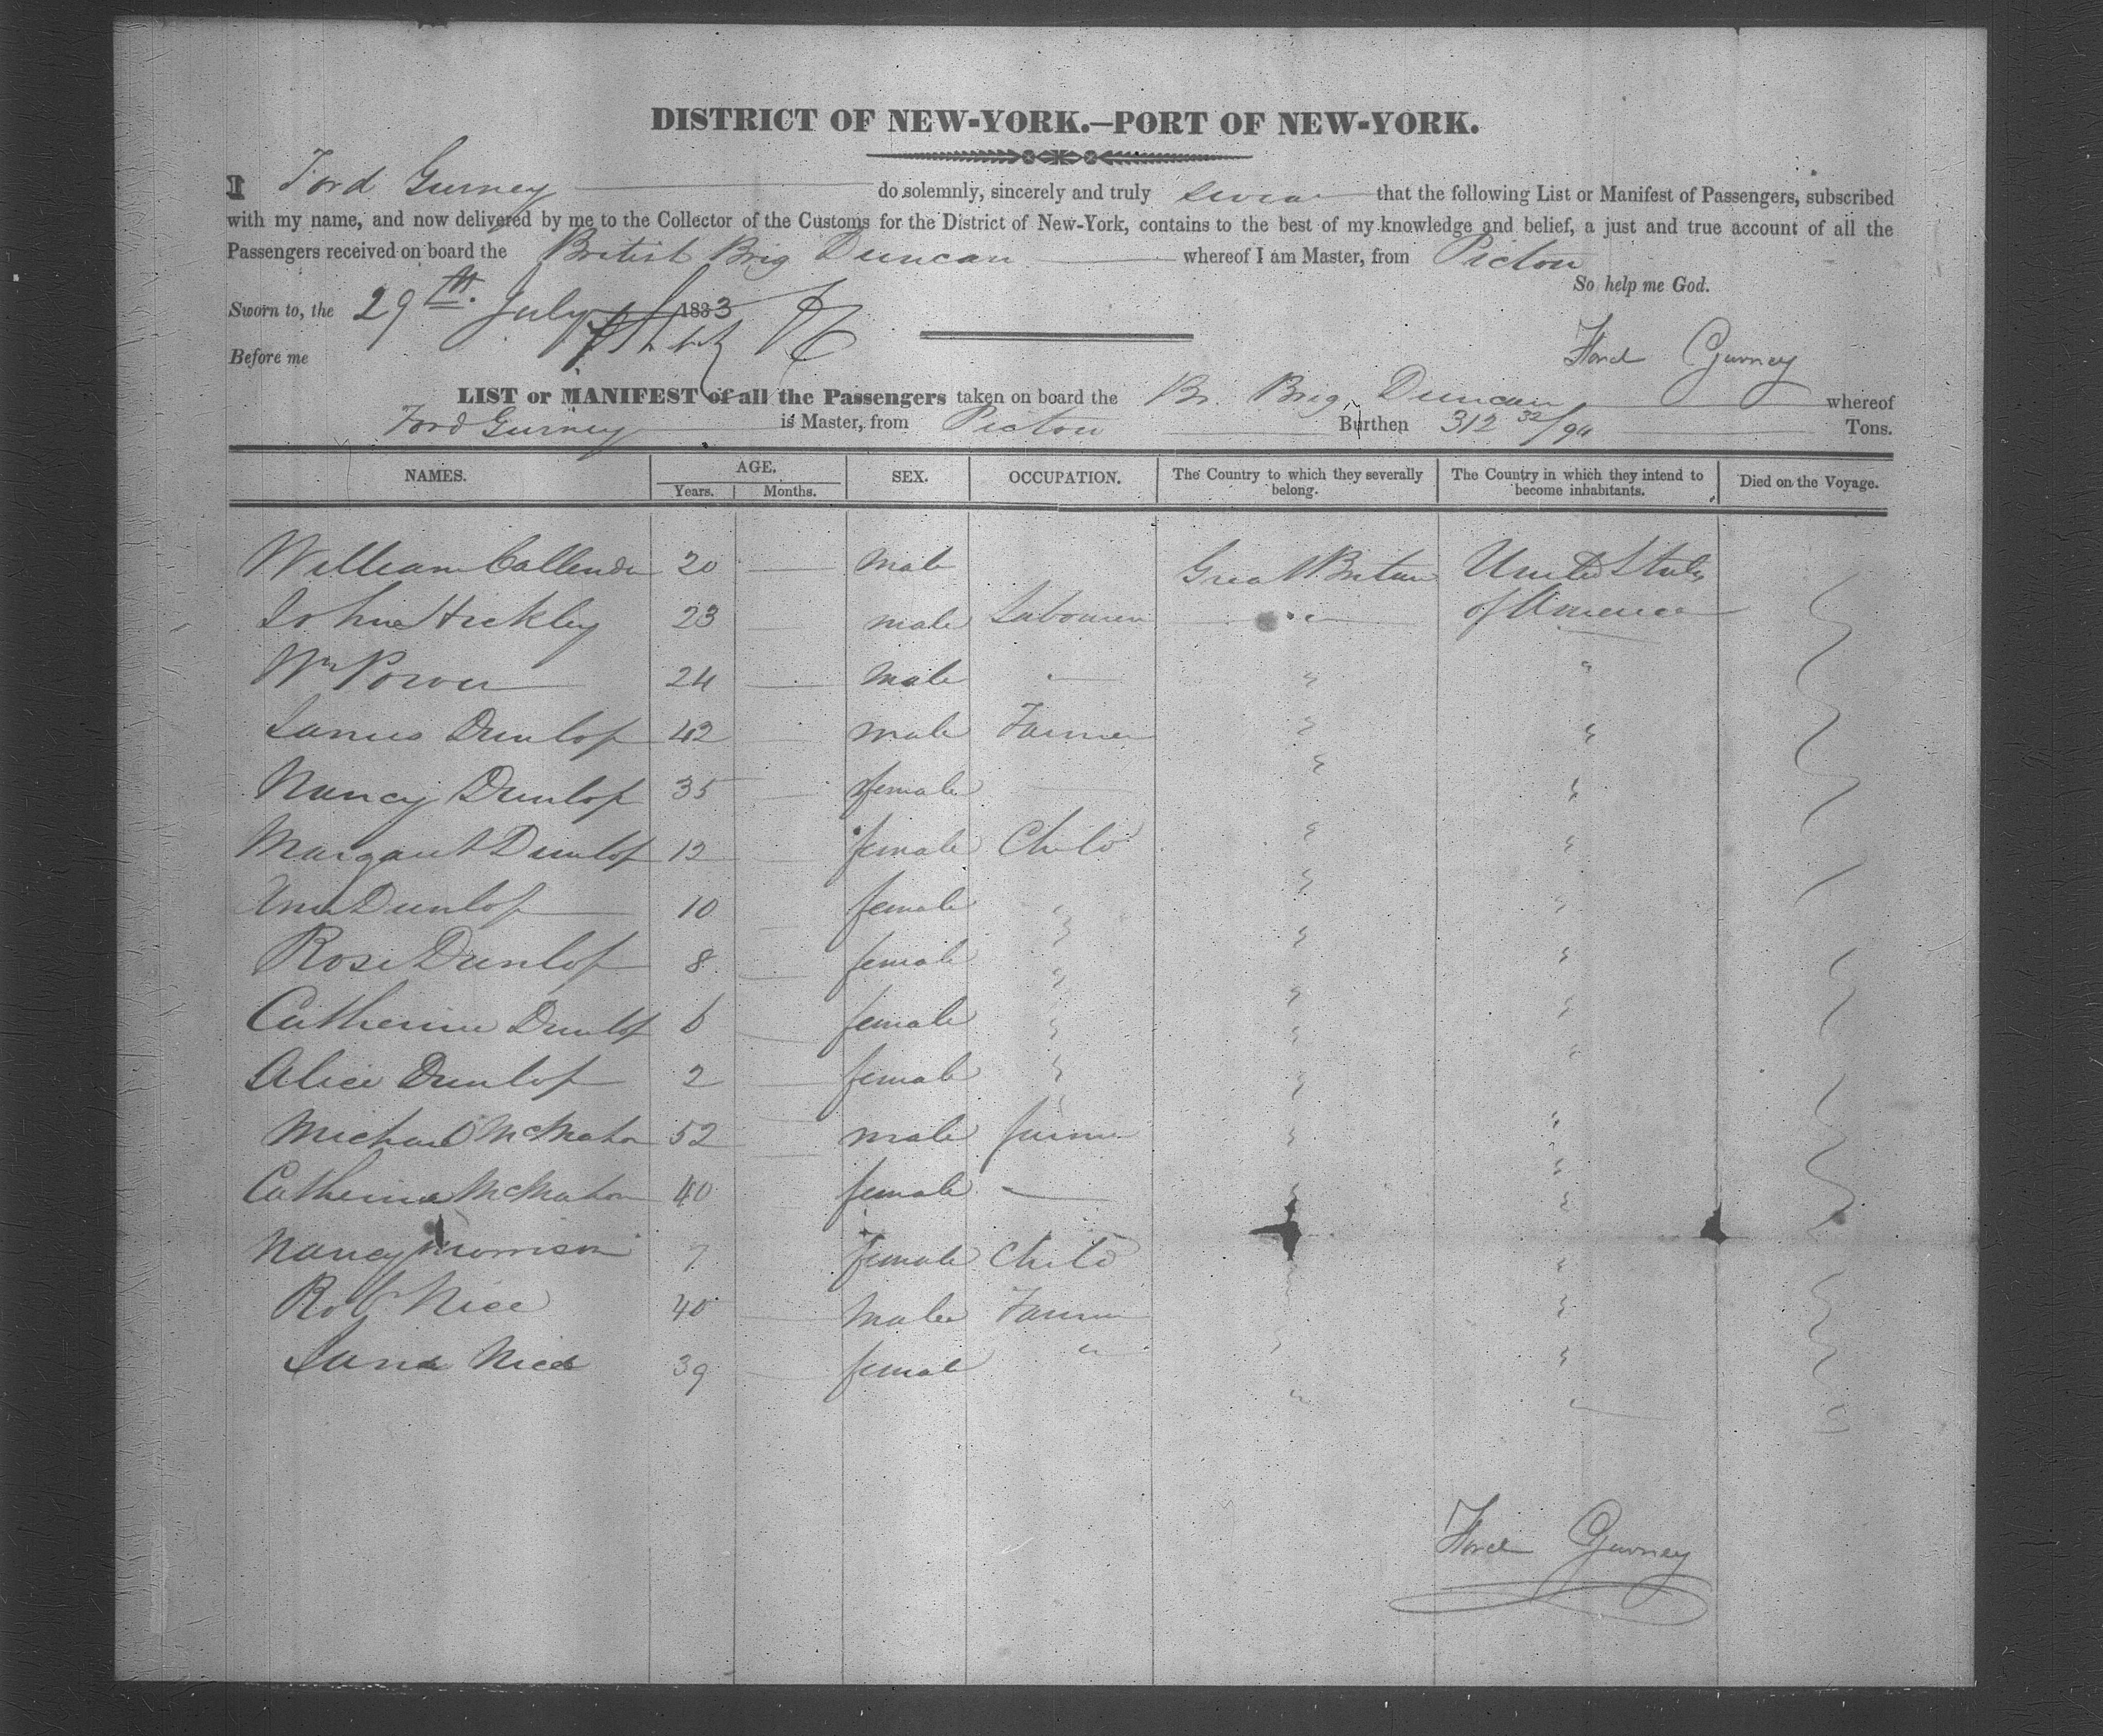 DISTRICT OF NEW-YORK.—PORT OF NEW-YORK.
I Ford Gurney do solemnly, sincerely and truly swear that the following List or Manifest of Passengers, subscribed
with my name, and now delivered by me to the Collector of the Customs for the District of New-York, contains to the best of my knowledge and belief, a just and true account of all the
Passengers received on board the British Brig Duncan whereof I am Master, from Pictou
So help me God.
Sworn to, the 29th. July 1833
Before me
Ford Gurney
LIST or MANIFEST of all the Passengers taken on board the Br. Brig Duncan whereof
Ford Gurney is Master, from Pictou Burthen 312 32/94 Tons.
NAMES. AGE. SEX. OCCUPATION. The Country to which they severally belong. The Country in which they intend to become inhabitants. Died on the Voyage.
Years. Months.
William Callender 20 — male Great Britain United States
John Hickley 23 — male Labourer " of America
Wm Power 24 — male — " "
James Dunlop 42 — male Farmer " "
Nancy Dunlop 35 — female — " "
Margaret Dunlop 12 — female Child " "
Ann Dunlop 10 — female " " "
Rose Dunlop 8 — female " " "
Catherine Dunlop 6 — female " " "
Alice Dunlop 2 — female " " "
Michael McMahon 52 — male farmer " "
Catherine McMahon 40 female — " "
Nancy Morrison 7 female Child " "
Robt Nice 40 — male Farmer " "
Jane Nice 39 — female " " "
Ford Gurney